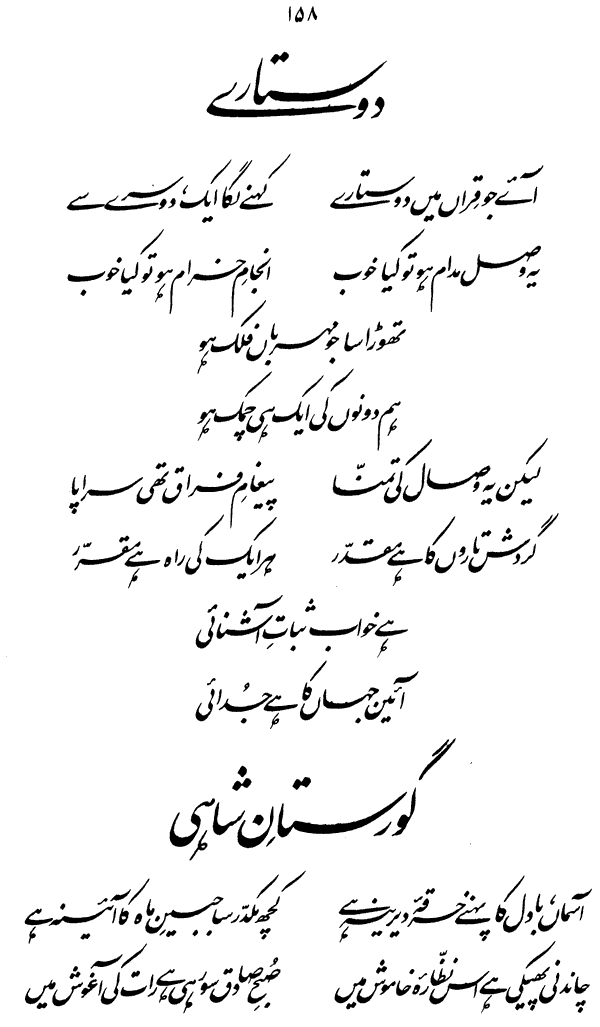 ۱۵۸
دو ستارے
آئے جو قِراں میں دو ستارے کہنے لگا ایک، دوسرے سے
یہ وصل مدام ہو تو کیا خوب انجامِ خرام ہو تو کیا خوب
تھوڑا سا جو مہرباں فلک ہو
ہم دونوں کی ایک ہی چمک ہو
لیکن یہ وصال کی تمنّا پیغامِ فراق تھی سراپا
گردش تاروں کا ہے مقدّر ہر ایک کی راہ ہے مقرّر
ہے خواب ثباتِ آشنائی
آئین جہاں کا ہے جُدائی
گورستانِ شاہی
آسماں، بادل کا پہنے خرقۂ دیرینہ ہے کچھ مکدّر سا جبینِ ماہ کا آئینہ ہے
چاندنی پھیکی ہے اس نظّارۂ خاموش میں صُبحِ صادق سو رہی ہے رات کی آغوش میں